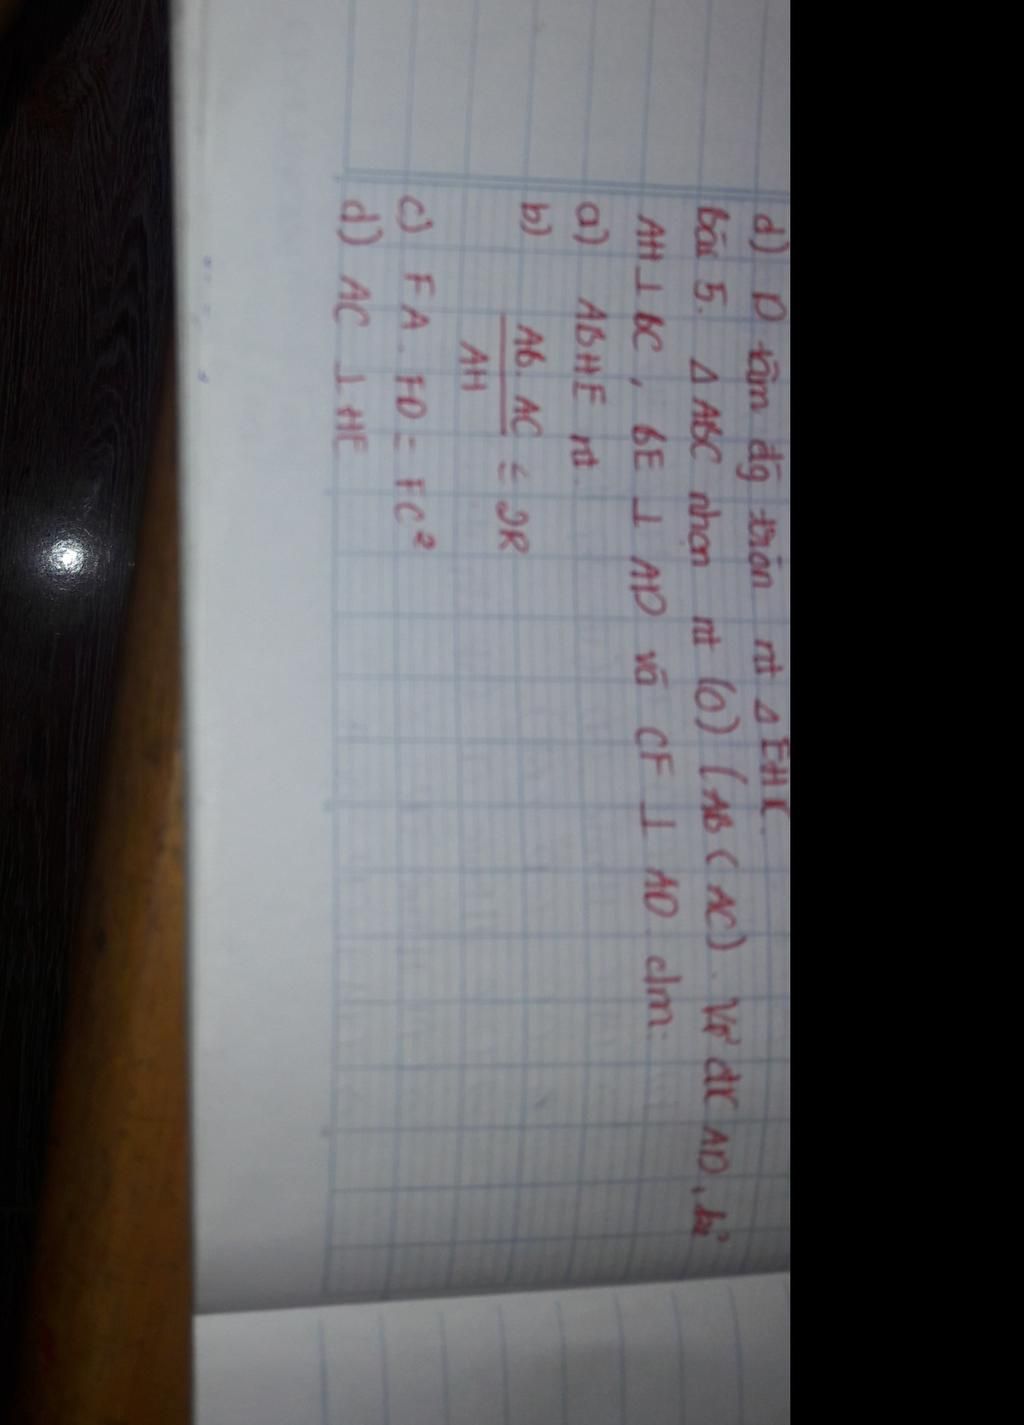 d) D tâm đg tròn nt Δ EHK.
bài 5. Δ ABC nhọn nt (O) (AB < AC). Vẽ đk AD, kẻ
AH ⊥ BC, BE ⊥ AD và CF ⊥ AD. c/m:
a) ABHE nt.
b) AB. AC = 2R
AH
c) FA. FD = FC²
d) AC ⊥ HE